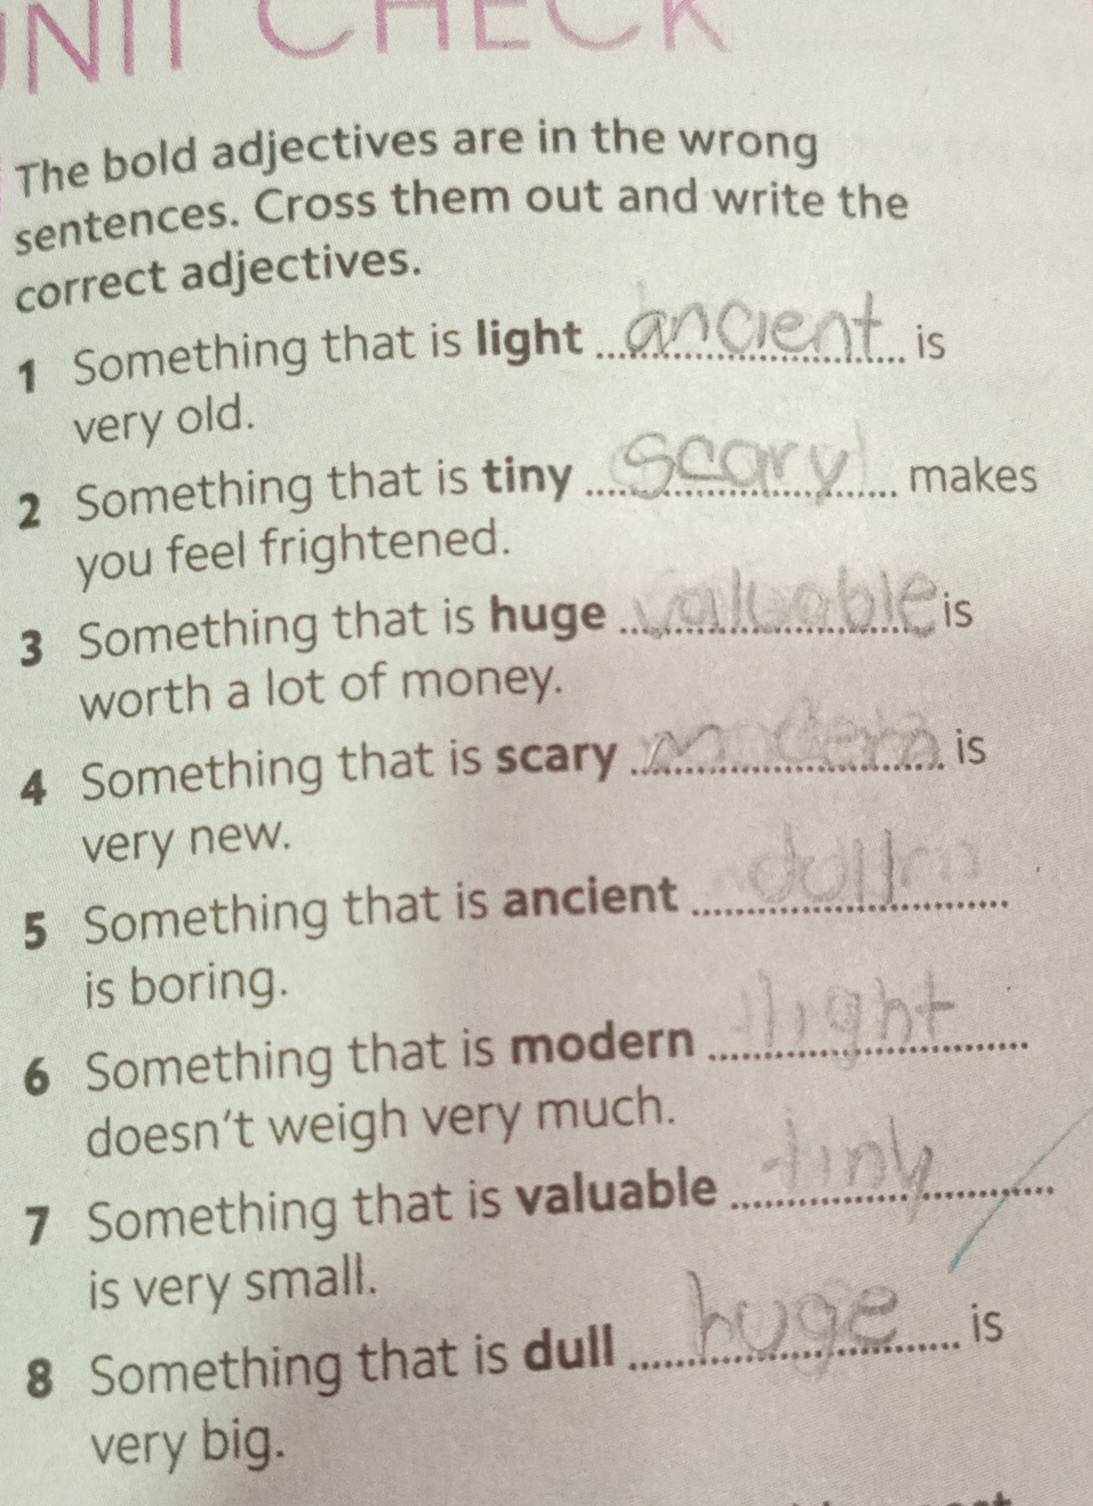 UNIT CHECK
The bold adjectives are in the wrong
sentences. Cross them out and write the
correct adjectives.
1 Something that is light ancient is
very old.
2 Something that is tiny scary makes
you feel frightened.
3 Something that is huge valuable is
worth a lot of money.
4 Something that is scary modern is
very new.
5 Something that is ancient dull
is boring.
6 Something that is modern light
doesn't weigh very much.
7 Something that is valuable tiny
is very small.
8 Something that is dull huge is
very big.